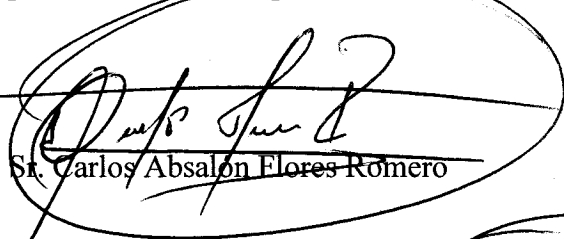 Sr. Carlos Absalón Flores Romero